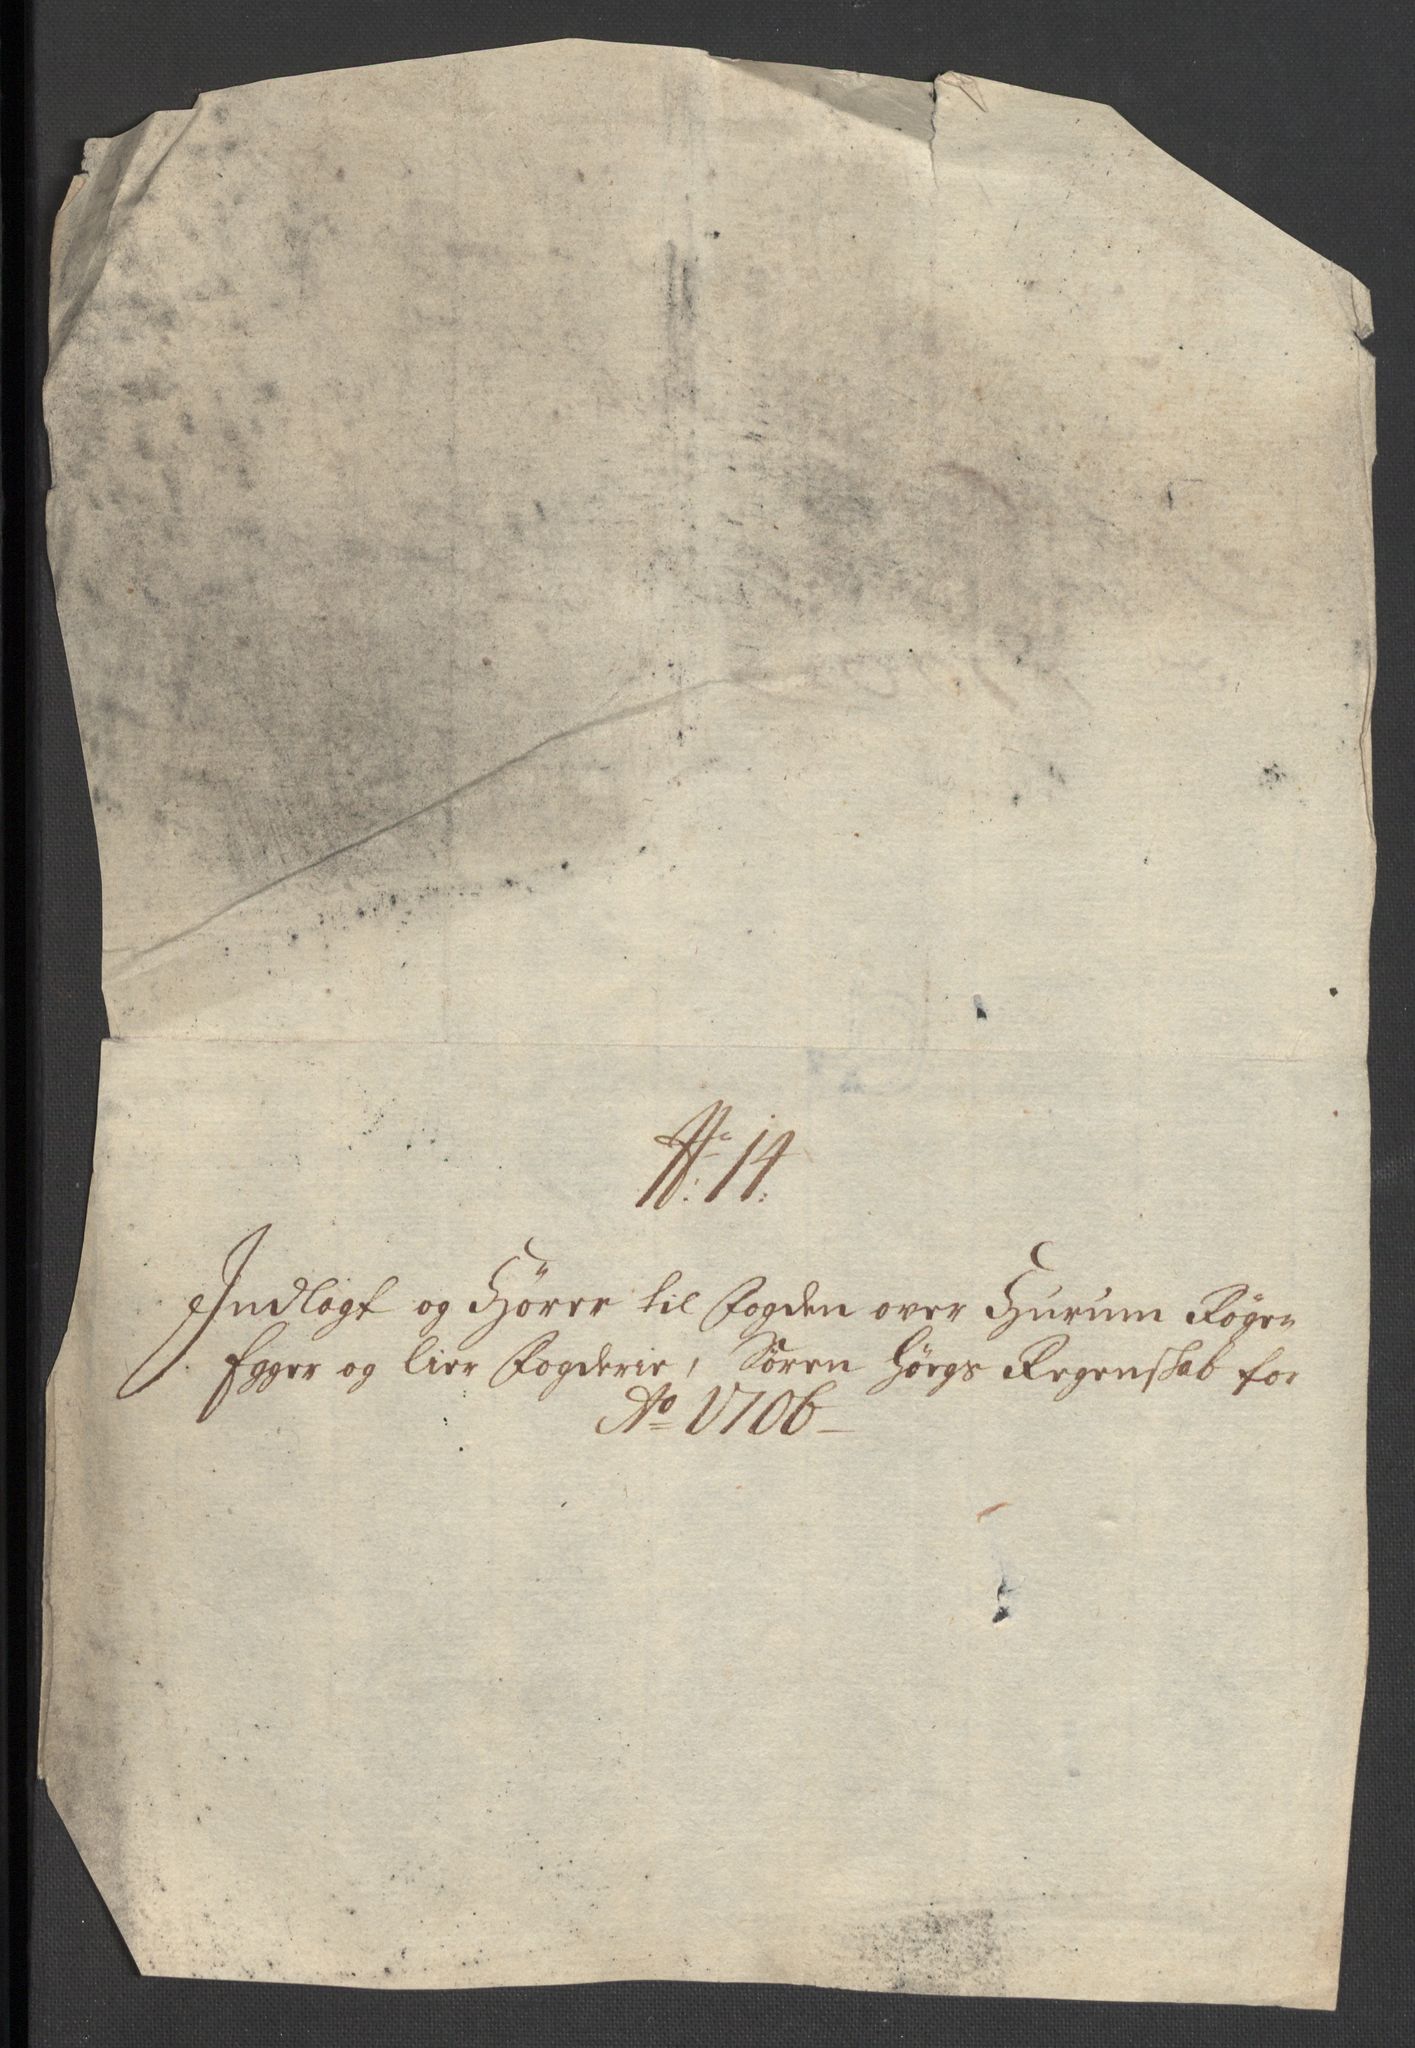 No: 14:
Indlagt og Hörer til Fogden over Hurum Röge=
Egger og Lier Fogderie, Sören Höegs Regenskab for
Ao 1706